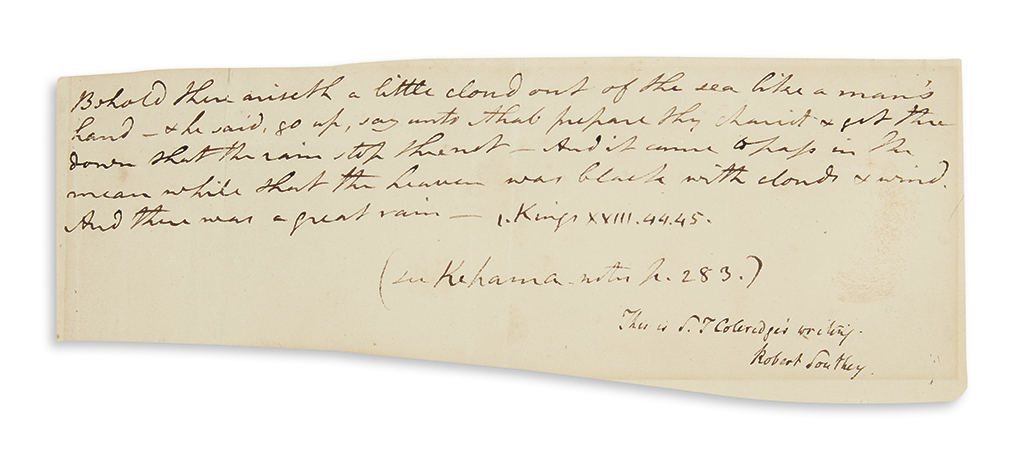 Behold there ariseth a little cloud out of the sea like a man's
hand – & he said, go up, say unto Ahab prepare thy chariot & get thee
down that the rain stop thee not – And it came to pass in the
mean while that the heaven was black with clouds & wind.
And there was a great rain – 1. Kings XXIII. 44.45.
(see Kehama notes p. 283.)
This is S. T Coleridge's writing.
Robert Southey.